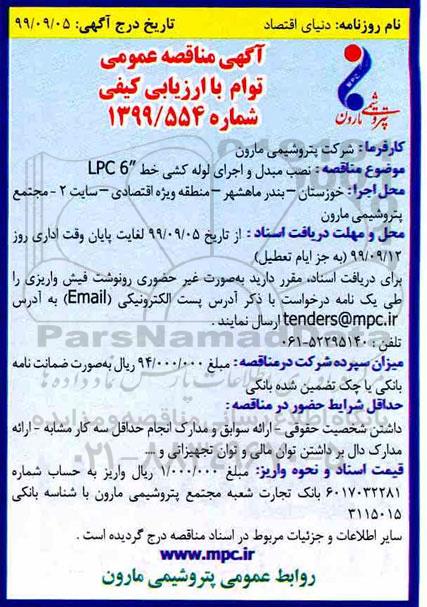 نام روزنامه: دنیای اقتصاد
تاریخ درج آگهی: ۹۹/۰۹/۰۵
MPC
پتروشیمی مارون
آگهی مناقصه عمومی
توام با ارزیابی کیفی
شماره ۱۳۹۹/۵۵۴
کارفرما: شرکت پتروشیمی مارون
موضوع مناقصه: نصب مبدل و اجرای لوله کشی خط LPC 6"
محل اجرا: خوزستان – بندر ماهشهر – منطقه ویژه اقتصادی – سایت ۲ - مجتمع
پتروشیمی مارون
محل و مهلت دریافت اسناد: از تاریخ ۹۹/۰۹/۰۵ لغایت پایان وقت اداری روز
۹۹/۰۹/۱۲ (به جز ایام تعطیل)
برای دریافت اسناد، مقرر دارید به‌صورت غیر حضوری رونوشت فیش واریزی را
طی یک نامه درخواست با ذکر آدرس پست الکترونیکی (Email) به آدرس
tenders@mpc.ir ارسال نمایند.
تلفن: ۵۲۲۹۵۱۴۰-۰۶۱
میزان سپرده شرکت در مناقصه: مبلغ ۹۴/۰۰۰/۰۰۰ ریال به‌صورت ضمانت نامه
بانکی یا چک تضمین شده بانکی
حداقل شرایط حضور در مناقصه:
داشتن شخصیت حقوقی - ارائه سوابق و مدارک انجام حداقل سه کار مشابه - ارائه
مدارک دال بر داشتن توان مالی و توان تجهیزاتی و ...
قیمت اسناد و نحوه واریز: مبلغ ۱/۰۰۰/۰۰۰ ریال واریز به حساب شماره
۶۰۱۷۰۳۲۲۸۱ بانک تجارت شعبه مجتمع پتروشیمی مارون با شناسه بانکی
۳۱۱۵۰۱۵
سایر اطلاعات و جزئیات مربوط در اسناد مناقصه درج گردیده است.
www.mpc.ir
روابط عمومی پتروشیمی مارون